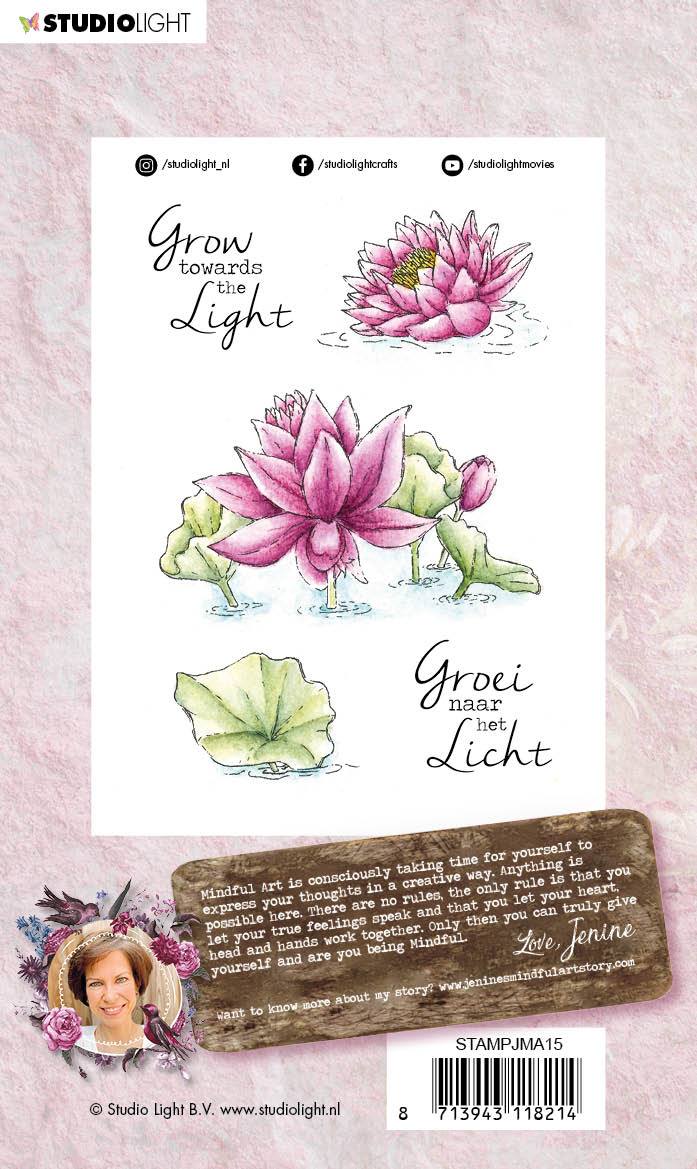 STUDIOLIGHT
/studiolight_nl /studiolightcrafts /studiolightmovies
Grow
towards
the
Light
Groei
naar
het
Licht
Mindful Art is consciously taking time for yourself to
express your thoughts in a creative way. Anything is
possible here. There are no rules, the only rule is that you
let your true feelings speak and that you let your heart,
head and hands work together. Only then you can truly give
yourself and are you being Mindful.
Love, Jenine
Want to know more about my story? www.jeninesmindfulartstory.com
STAMPJMA15
© Studio Light B.V. www.studiolight.nl
8 713943 118214